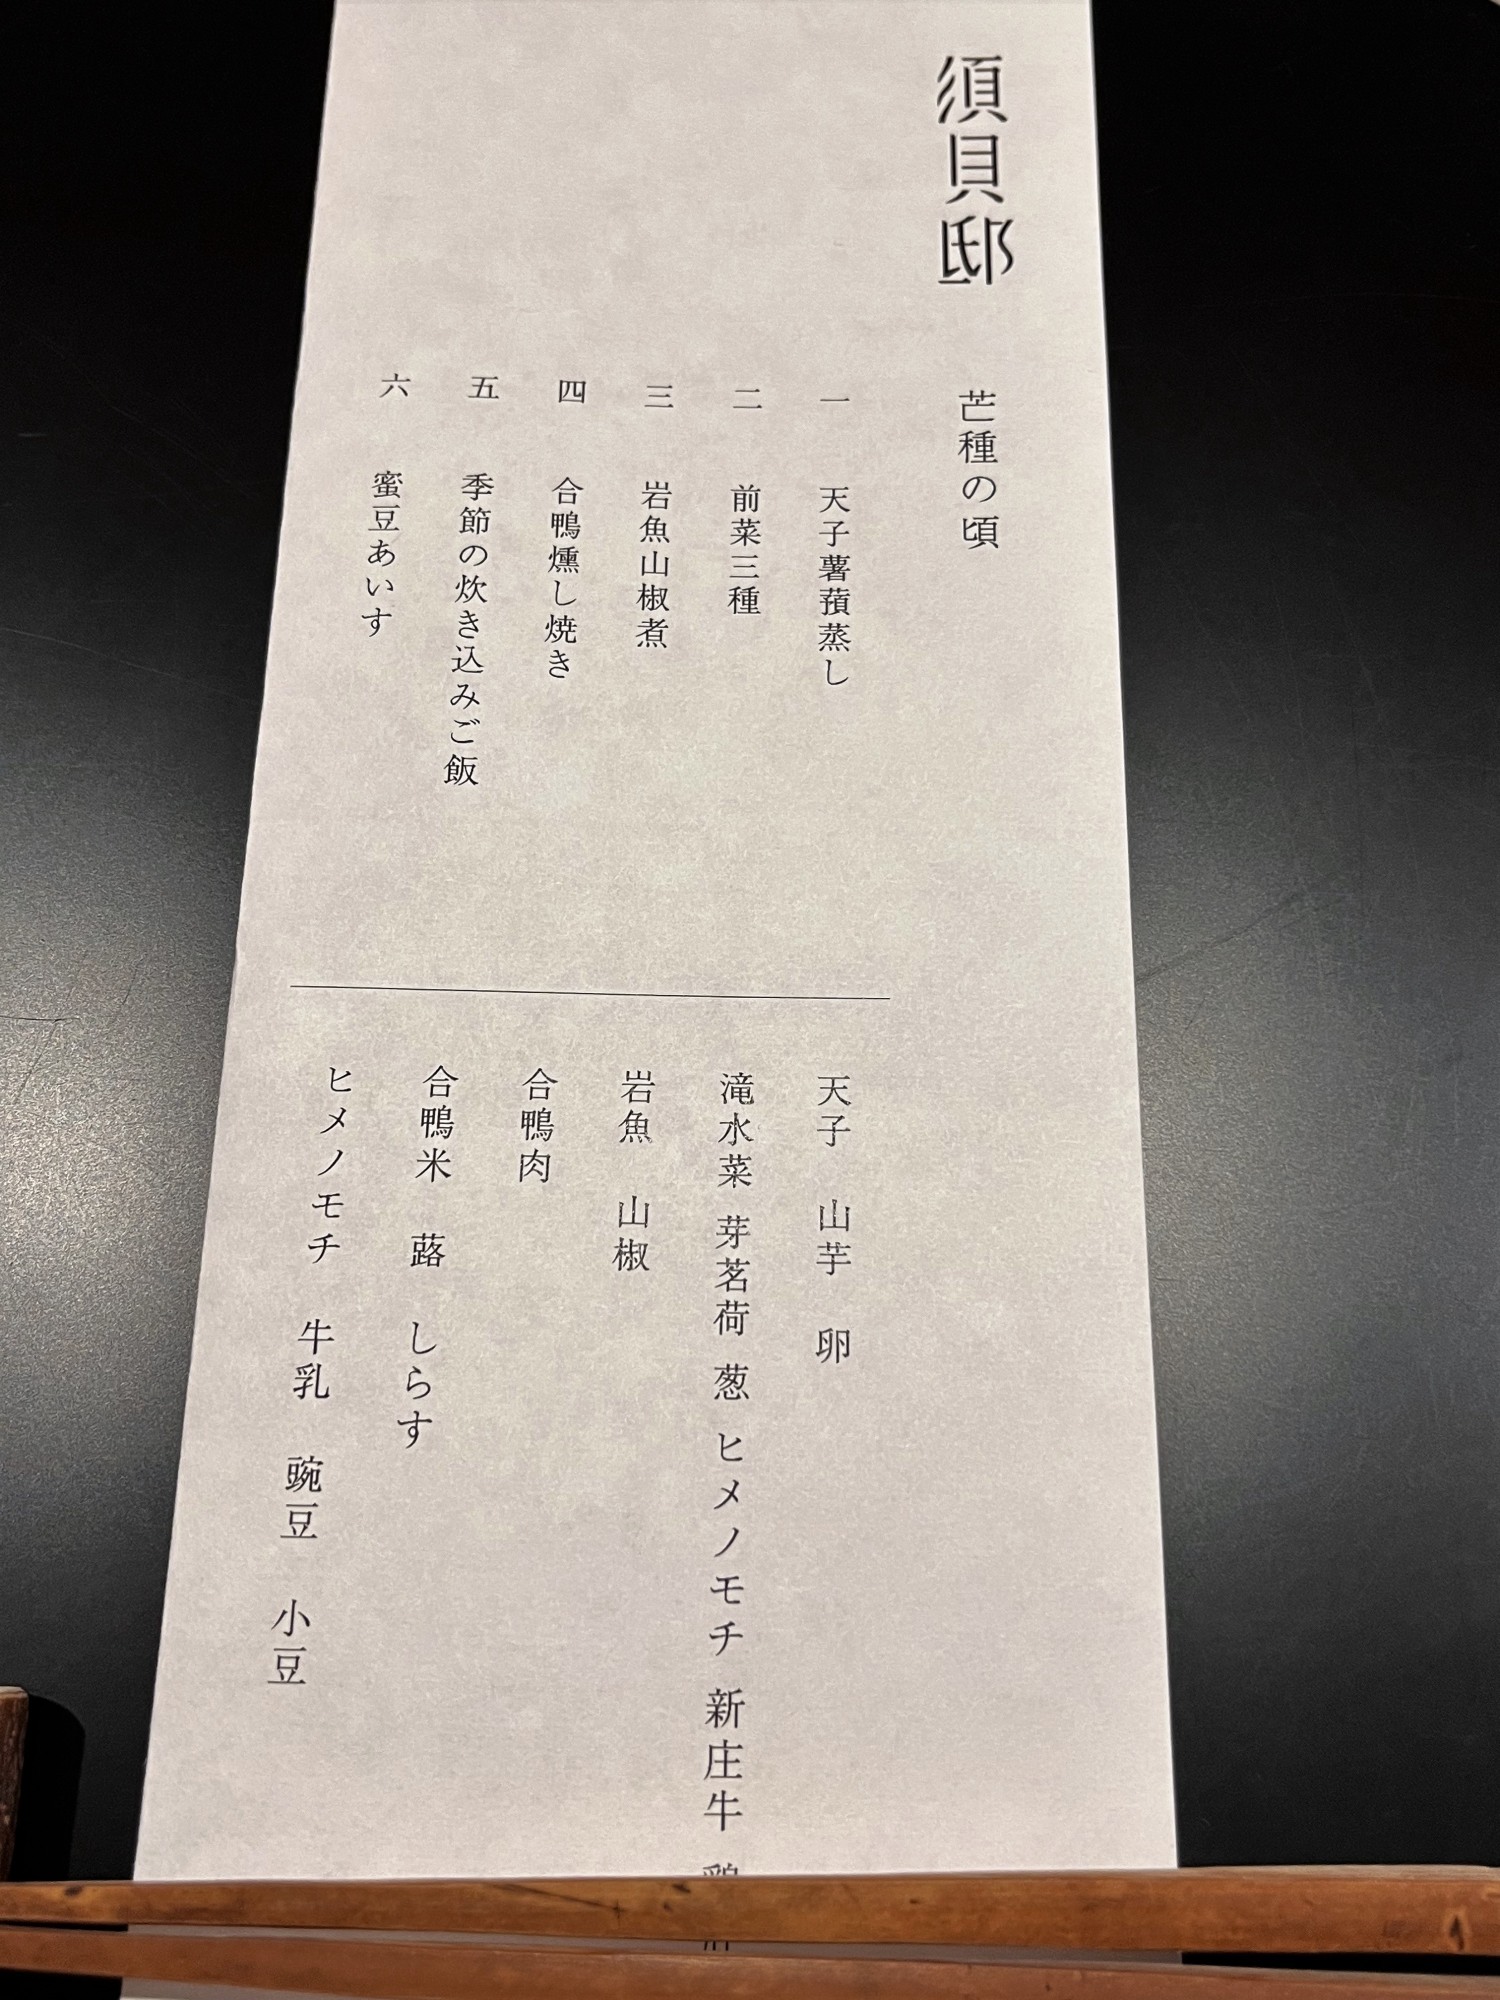 須貝邸
芒種の頃
一 天子薯蕷蒸し
二 前菜三種
三 岩魚山椒煮
四 合鴨燻し焼き
五 季節の炊き込みご飯
六 蜜豆あいす
天子 山芋 卵
滝水菜 芽茗荷 葱 ヒメノモチ 新庄牛
岩魚 山椒
合鴨肉
合鴨米 蕗 しらす
ヒメノモチ 牛乳 豌豆 小豆